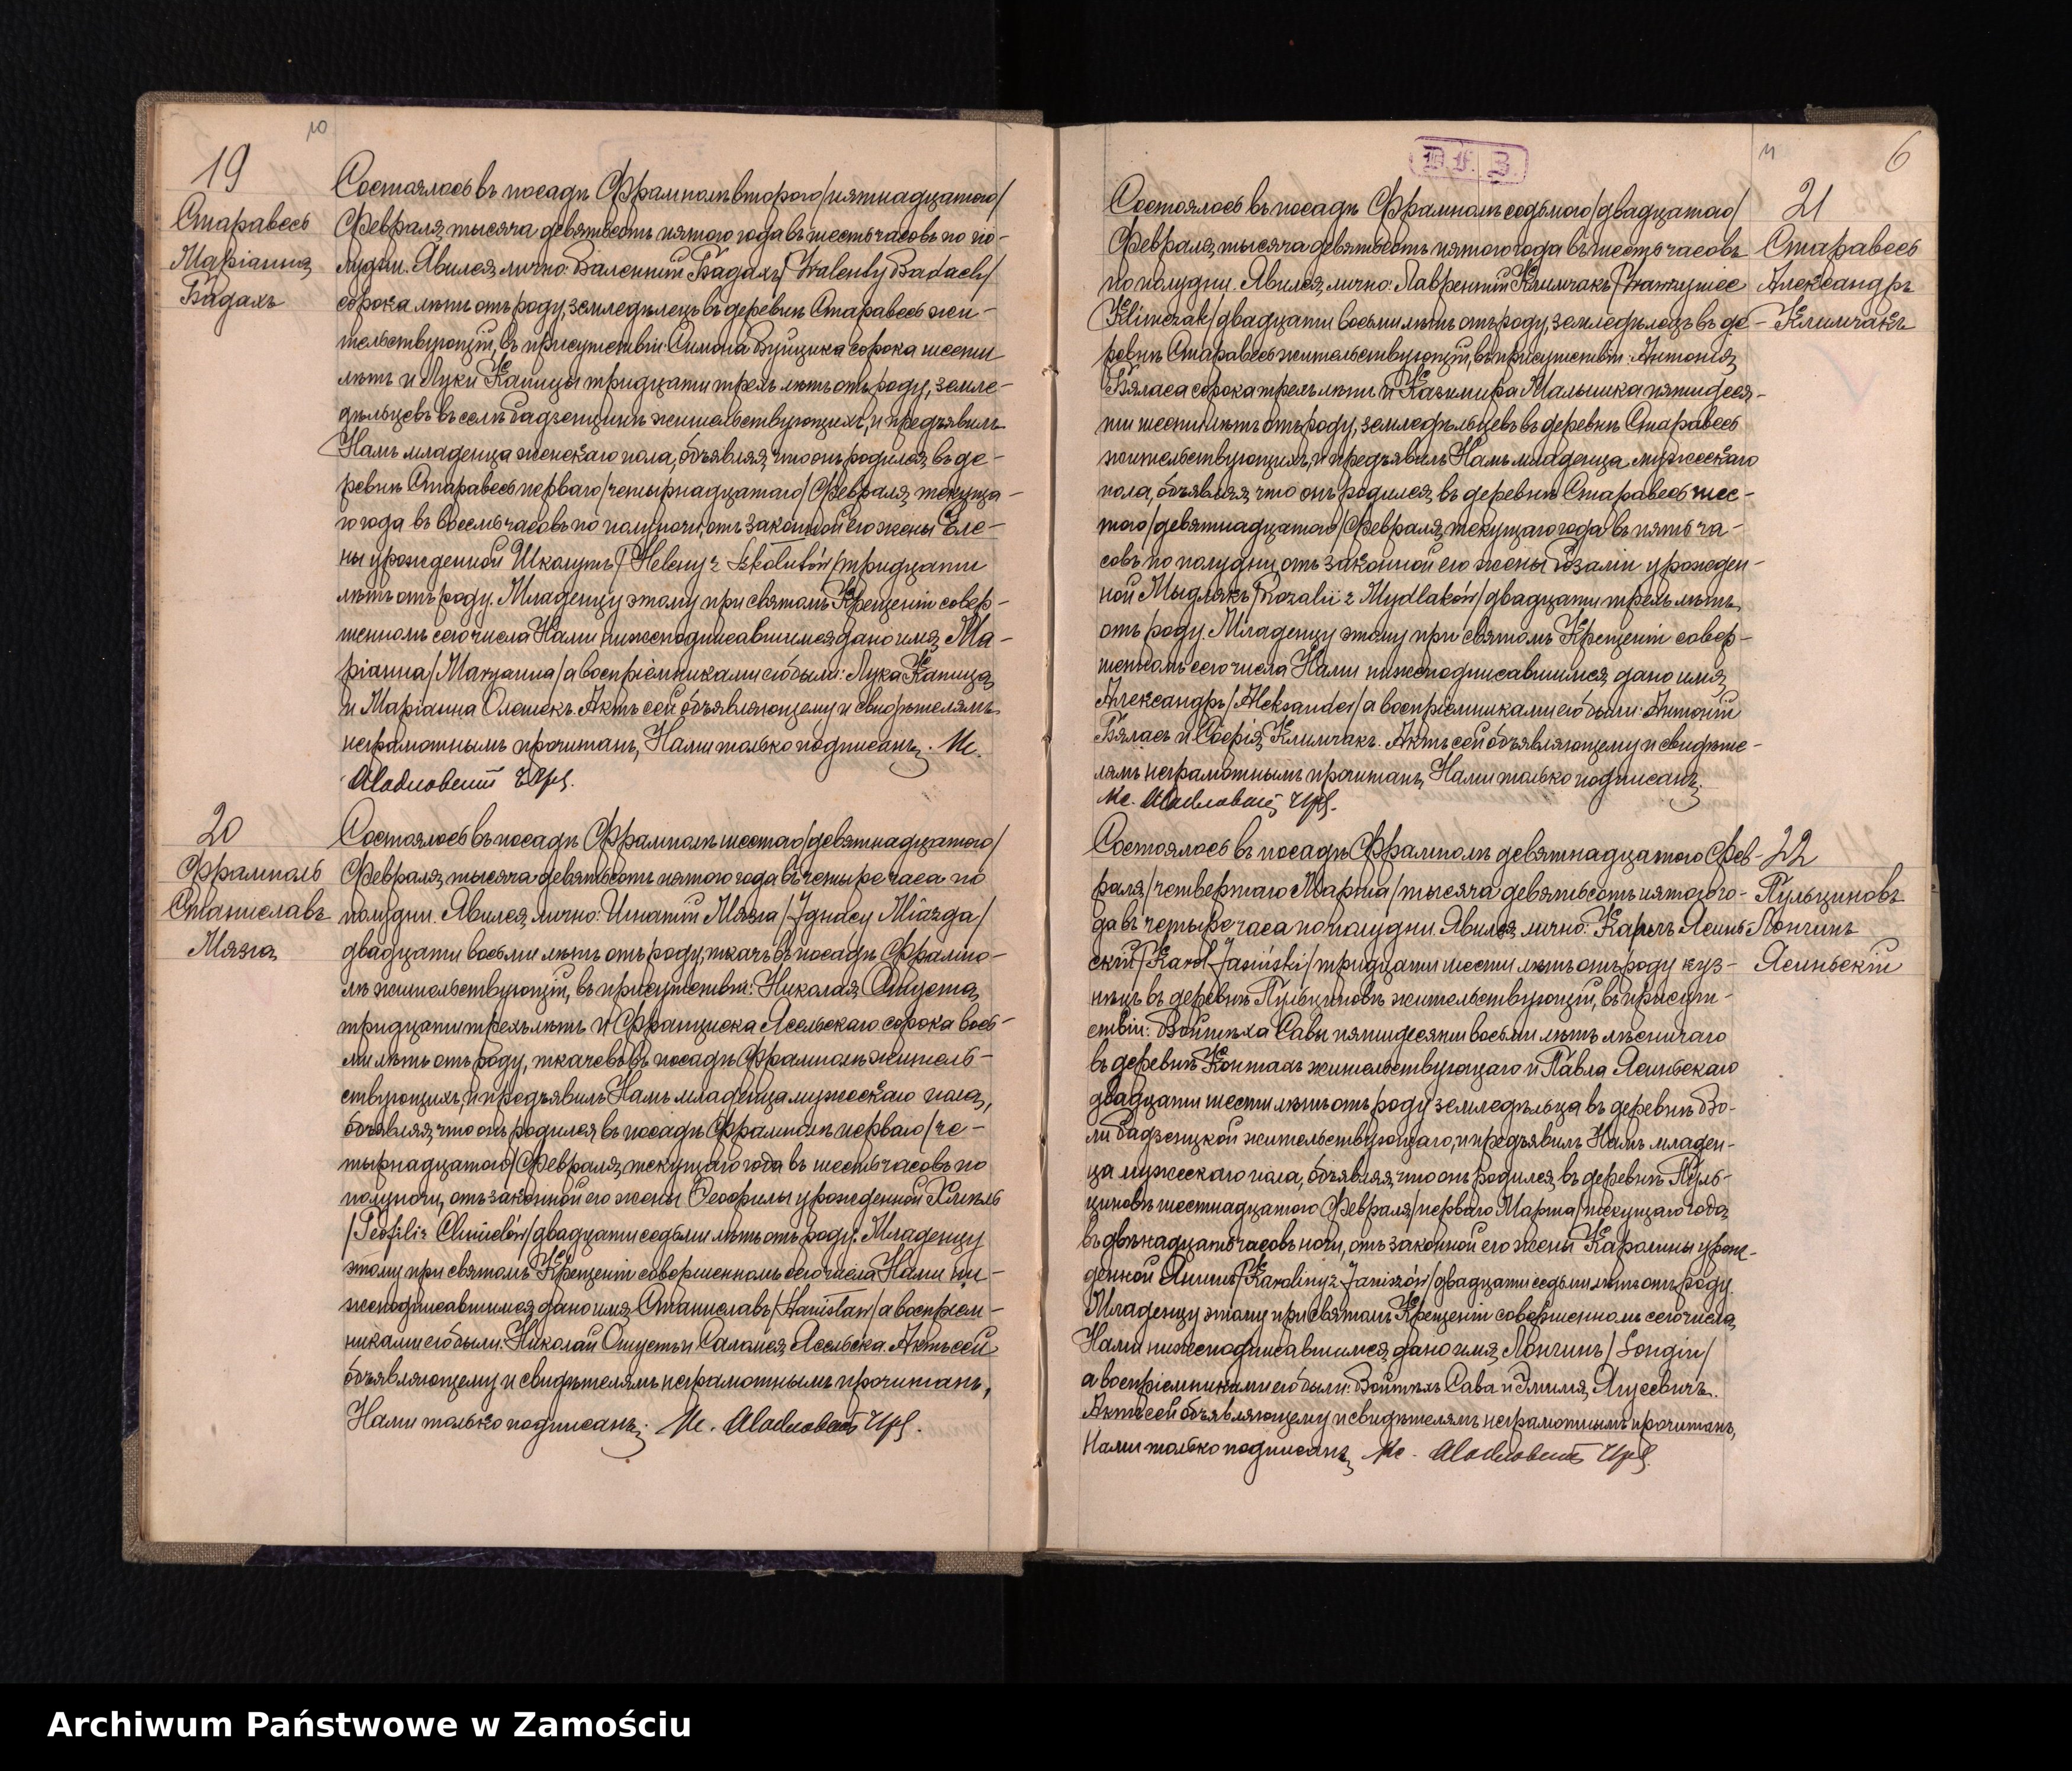 10
19
Старавесь
Маріанна
Бадахъ
Состоялось въ посадѣ Фрамполѣ второго /пятнадцатого/
Февраля тысяча девятьсотъ пятого года въ шесть часовъ по по-
лудни. Явился лично: Валентій Бадахъ /Walenty Badach/
сорока лѣтъ отъ роду, земледѣлецъ въ деревнѣ Старавесь жи-
тельствующій, въ присутствіи Симона сорока шести
лѣтъ и Луки Капицы тридцати трехъ лѣтъ отъ роду, земле-
дѣльцевъ въ селѣ Радзенцинѣ жительствующихъ, и предъявилъ
Намъ младенца женскаго пола, объявляя, что онъ родился въ де-
ревнѣ Старавесь перваго /четырнадцатаго/ Февраля текуща-
го года въ восемь часовъ по полуночи, отъ законной его жены Еле-
ны урожденной Школутъ /Heleny z Szkołutów/ тридцати
лѣтъ отъ роду. Младенцу этому при святомъ Крещеніи совер-
шенномъ сего числа Нами нижеподписавшимся дано имя Ма-
ріанна /Maryanna/ а воспріемниками его были: Лука Капица
и Маріанна Олешекъ. Актъ сей объявляющему и свидѣтелямъ
неграмотнымъ прочитанъ, Нами только подписанъ.
20
Фрамполь
Станиславъ
Мязга
Состоялось въ посадѣ Фрамполѣ шестаго /девятнадцатаго/
Февраля тысяча девятьсотъ пятого года въ четыре часа по
полудни. Явился лично: Игнатій Мязга /Ignacy Miazga/
двадцати восьми лѣтъ отъ роду, ткачъ въ посадѣ Фрампо-
лѣ жительствующій, въ присутствіи: Николая
тридцати трехъ лѣтъ и Францишка Ясельскаго сорока вось-
ми лѣтъ отъ роду, ткачовъ въ посадѣ Фрамполѣ житель-
ствующихъ, и предъявилъ Намъ младенца мужескаго пола,
объявляя, что онъ родился въ посадѣ Фрамполѣ перваго /че-
тырнадцатаго/ Февраля текущаго года въ шесть часовъ по
полуночи, отъ законной его жены Теофилы урожденной Хмѣль
/Teofili z Chmielów/ двадцати седьми лѣтъ отъ роду. Младенцу
этому при святомъ Крещеніи совершенномъ сего числа Нами ни-
жеподписавшимся дано имя Станиславъ /Stanisław/ а воспріем-
никами его были: Николай и Саломея Ясельска. Актъ сей
объявляющему и свидѣтелямъ неграмотнымъ прочитанъ,
Нами только подписанъ.
D.F.B.
11
6
21
Старавесь
Александръ
Климчакъ
Состоялось въ посадѣ Фрамполѣ седьмого /двадцатого/
Февраля тысяча девятьсотъ пятого года въ шесть часовъ
по полудни. Явился лично: Лаврентій Климчакъ /Wawrzyniec
Klimczak/ двадцати восьми лѣтъ отъ роду, земледѣлецъ въ де-
ревнѣ Старавесь жительствующій, въ присутствіи: Антонія
Бяласа сорока трехъ лѣтъ и Казимира Малышка пятидеся-
ти шести лѣтъ отъ роду, земледѣльцевъ въ деревнѣ Старавесь
жительствующихъ, и предъявилъ Намъ младенца мужескаго
пола, объявляя, что онъ родился въ деревнѣ Старавесь шес-
того /девятнадцатаго/ Февраля текущаго года въ пять ча-
совъ по полудни отъ законной его жены Розаліи урожден-
ной Мыдлякъ /Rozalii z Mydlaków/ двадцати трехъ лѣтъ
отъ роду. Младенцу этому при святомъ Крещеніи совер-
шенномъ сего числа Нами нижеподписавшимся дано имя
Александръ /Aleksander/ а воспріемниками его были: Антоній
Бяласъ и Софія Климчакъ. Актъ сей объявляющему и свидѣте-
лямъ неграмотнымъ прочитанъ, Нами только подписанъ.
22
Пульциновъ
Лонгинъ
Ясиньскій
Состоялось въ посадѣ Фрамполѣ девятнадцатого Фев-
раля /четвертаго Марта/ тысяча девятьсотъ пятого го-
да въ четыре часа по полудни. Явился лично: Кароль Ясинь-
скій /Karol Jasiński/ тридцати шести лѣтъ отъ роду куз-
нецъ въ деревнѣ Пульциновѣ жительствующій, въ присут-
ствіи: Войтѣха Савы пятидесяти восьми лѣтъ лѣсничаго
въ деревнѣ жительствующаго и Павла Ясиньскаго
двадцати шести лѣтъ отъ роду земледѣльца въ деревнѣ Во-
ли Радзенцкой жительствующаго, и предъявилъ Намъ младен-
ца мужескаго пола, объявляя, что онъ родился въ деревнѣ Пуль-
циновѣ шестнадцатого Февраля /перваго Марта/ текущаго года
въ двѣнадцать часовъ ночи, отъ законной его жены Каролины урож-
денной Янишъ /Karoliny z Janiszów/ двадцати седьми лѣтъ отъ роду.
Младенцу этому при святомъ Крещеніи совершенномъ сего числа
Нами нижеподписавшимся дано имя Лонгинъ /Longin/
а воспріемниками его были: Войтѣхъ Сава и Эмилія
Актъ сей объявляющему и свидѣтелямъ неграмотнымъ прочитанъ,
Нами только подписанъ.
Archiwum Państwowe w Zamościu